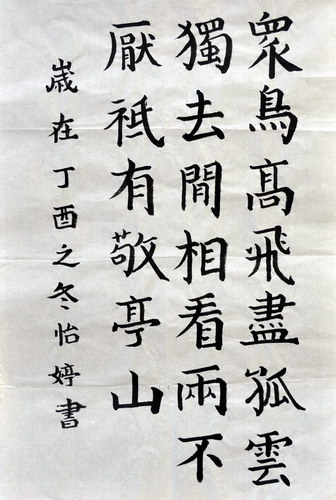 眾鳥高飛盡孤雲
獨去閒相看兩不
厭祗有敬亭山
歲在丁酉之冬怡婷書